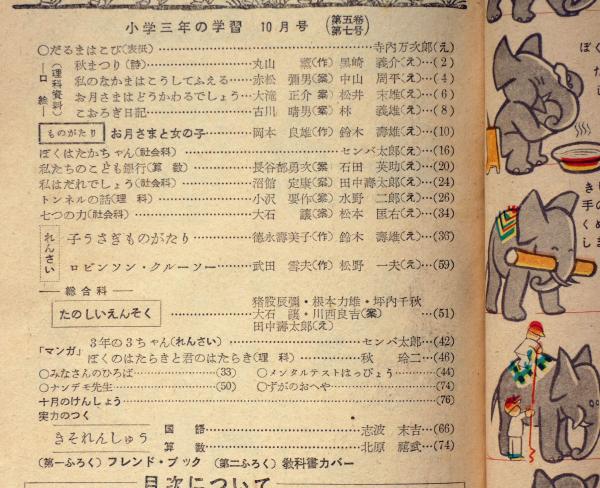 小学三年の学習 10月号 (第五巻 第七号)
○だるまはこび(表紙)…寺内万次郎(え)
口絵(理科資料)
秋まつり(詩)…丸山 薫(作) 黒崎 義介(え)…(2)
私のなかまはこうしてふえる…赤松 彌男(案) 中山 周平(え)…(4)
お月さまはどうかわるでしょう…大滝 正介(案) 松井 末雄(え)…(6)
こおろぎ日記…古川 晴男(案) 林 義雄(え)…(8)
ものがたり お月さまと女の子…岡本 良雄(作) 鈴木 壽雄(え)…(10)
ぼくはたかちゃん(社会科)…センバ太郎(え)…(16)
私たちのこども銀行(算 数)…長谷部勇次(案) 石田 英助(え)…(20)
私はだれでしょう(社会科)…沼館 定康(案) 田中壽太郎(え)…(24)
トンネルの話(理 科)…小沢 要作(案) 水野 二郎(え)…(26)
七つの力(社会科)…大石 譲(案) 松本 匡右(え)…(34)
れんさい
子うさぎものがたり…德永壽美子(作) 鈴木 壽雄(え)…(36)
ロビンソン・クルーソー…武田 雪夫(作) 松野 一夫(え)…(59)
総合科
たのしいえんそく
猪股辰彌・根本力雄・坪内千秋
大石 譲・川西良吉(案)…(51)
田中壽太郎(え)
「マンガ」
3年の3ちゃん(れんさい)…センバ太郎…(42)
ぼくのはたらきと君のはたらき(理 科)…秋 玲二…(46)
○みなさんのひろば…(33) ○メンタルテストはっぴょう…(44)
○ナンデモ先生…(50) ○ずがのおへや…(74)
十月のけんしょう…(76)
実力のつく
きそれんしゅう
国 語…志波 末吉…(66)
算 数…北原 福武…(74)
(第一ふろく) フレンド・ブック (第二ふろく) 教科書カバー
目次について